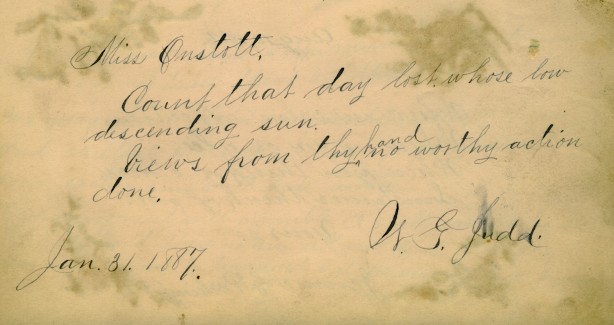 Miss Onstott,
Count that day lost whose low
descending sun.
Views from thy hand no worthy action
done.
W. G. Judd.
Jan. 31. 1887.